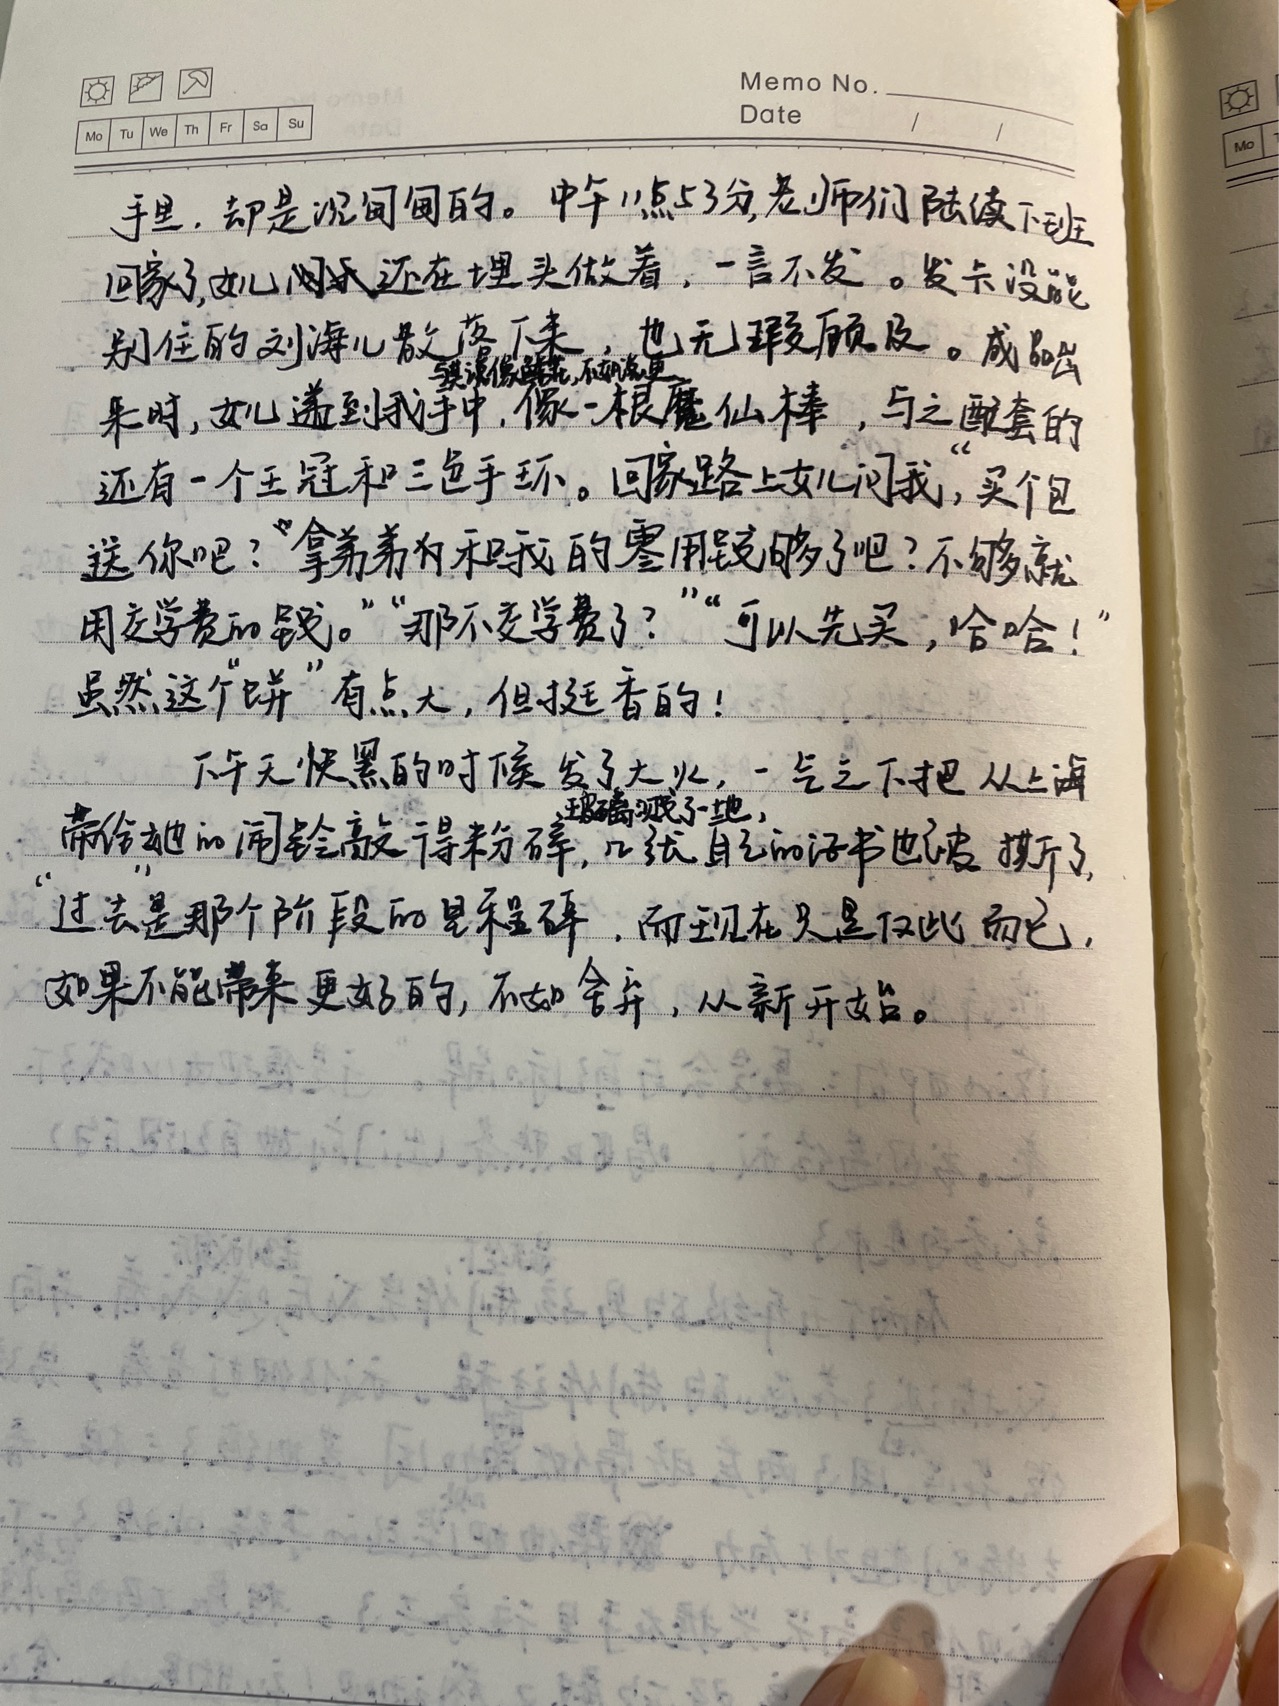 Memo No.
Date / /
Mo Tu We Th Fr Sa Su
Mo
手里，却是沉甸甸的。中午11点53分，老师们陆续下班
回家了，女儿还在埋头做着，一言不发。发卡没能
别住的刘海儿散落下来，也无瑕顾及。成品出
与其说像鲜花，不如说更
来时，女儿递到我手中，像一根魔仙棒，与之配套的
还有一个王冠和三色手环。回家路上女儿问我，“买个包
送你吧？“拿弟弟和我的零用钱够了吧？不够就
用交学费的钱。”“那不交学费了？”“可以先买，哈哈！”
虽然这个“饼”有点大，但挺香的！
下午天快黑的时候发了大火，一气之下把从上海
玻璃溅了一地，
带给她的闹铃敲得粉碎，几张自己的证书也被撕了，
“过去”是那个阶段的里程碑，而现在只是仅此而已，
如果不能带来更好的，不如舍弃，从新开始。